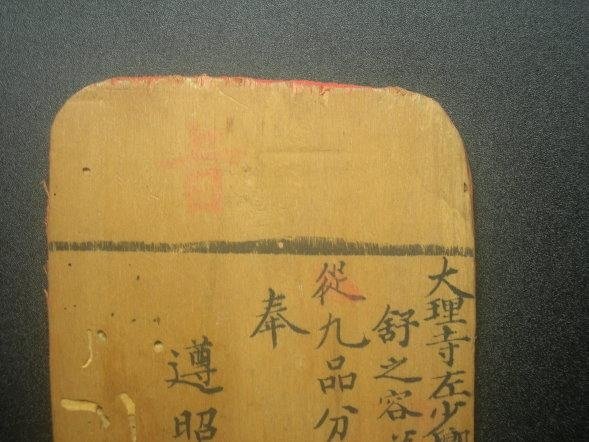 大理寺左少卿
舒之容
從九品分
奉
遵昭
吉